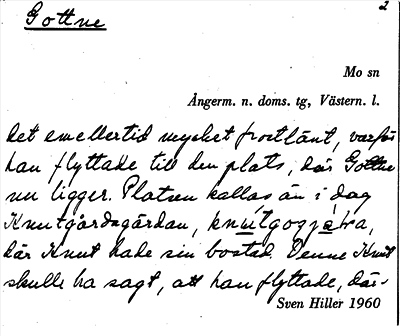 Gottne
2
Mo sn
Ångerm. n. doms. tg, Västern. l.
det emellertid mycket frostlänt, varför
han flyttade till den plats, där Gottne
nu ligger. Platsen kallas än i dag
Knutgårdsgärdan,
där Knut hade sin bostad. Denne Knut
skulle ha sagt, att han flyttade, där-
Sven Hiller 1960